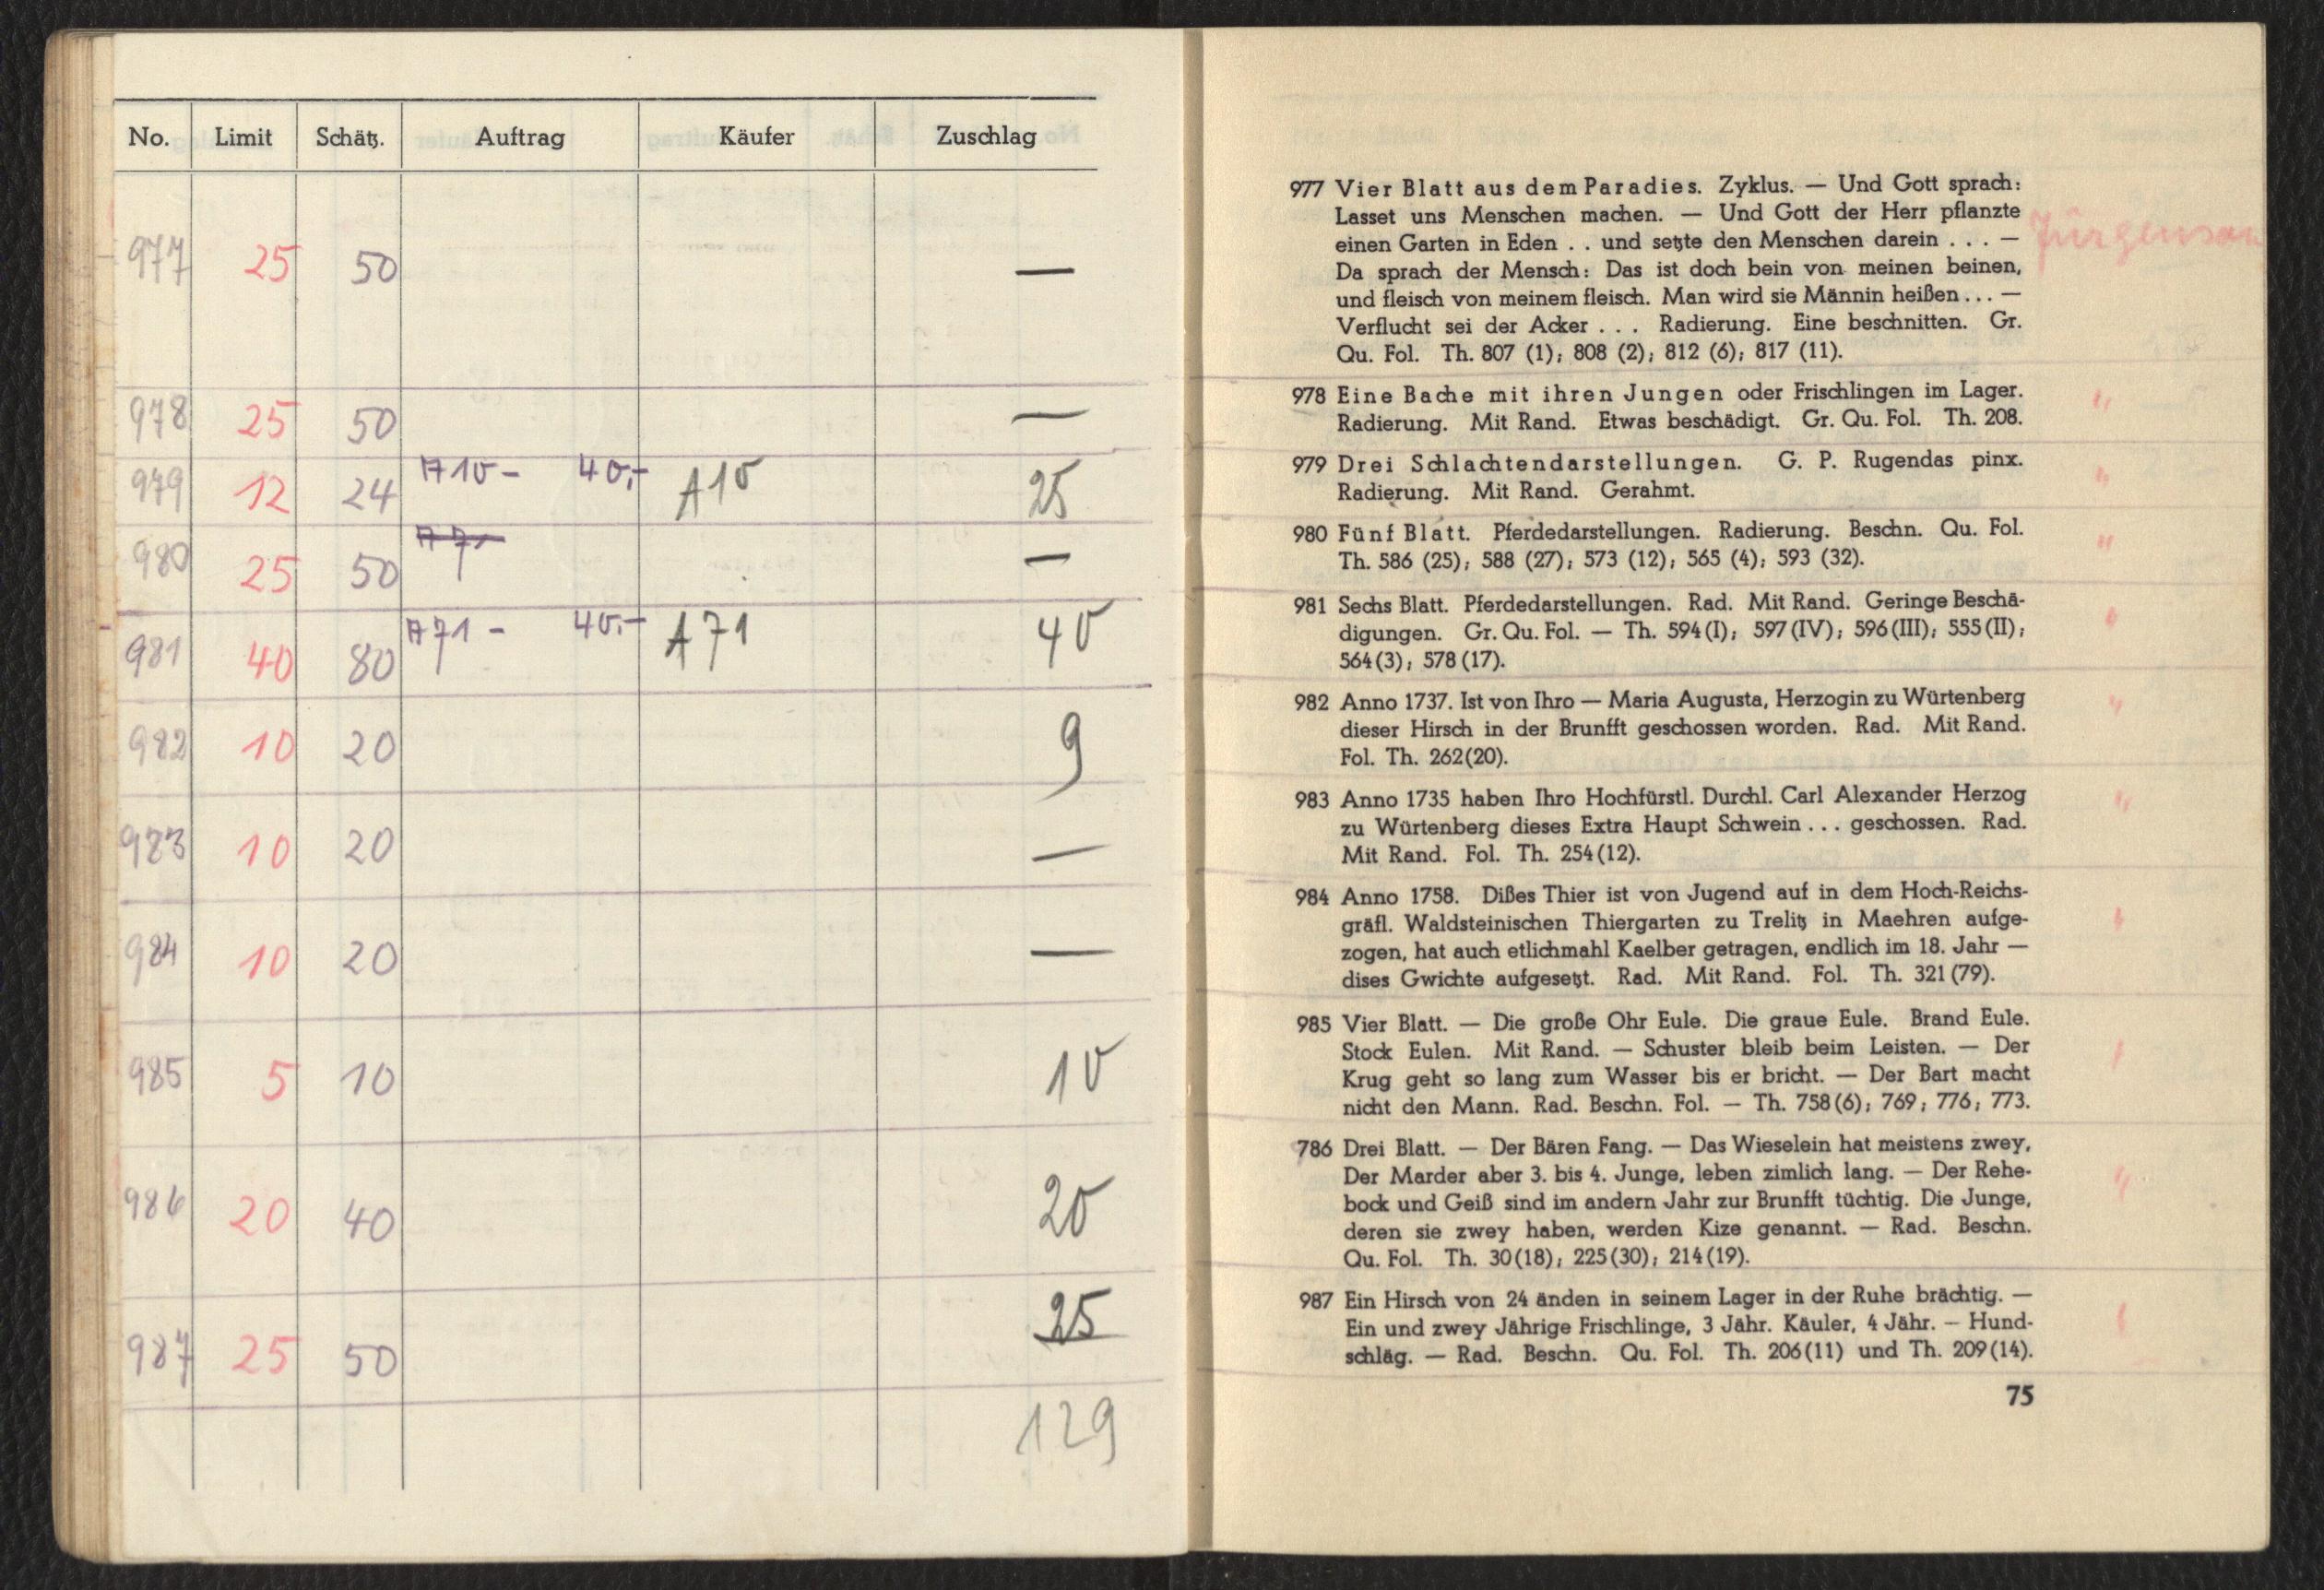 No. Limit Schätz. Auftrag Käufer Zuschlag
977 25 50 —
978 25 50 —
979 12 24 A10 - 40,- A10 25
980 25 50 A71 —
981 40 80 A71 - 40.- A71 40
982 10 20 9
983 10 20 —
984 10 20 —
985 5 10 10
986 20 40 20
987 25 50 25
129
977 Vier Blatt aus dem Paradies. Zyklus. — Und Gott sprach:
Lasset uns Menschen machen. — Und Gott der Herr pflanzte
einen Garten in Eden . . und setzte den Menschen darein . . . — Jürgenson
Da sprach der Mensch: Das ist doch bein von meinen beinen,
und fleisch von meinem fleisch. Man wird sie Männin heißen . . . —
Verflucht sei der Acker . . . Radierung. Eine beschnitten. Gr.
Qu. Fol. Th. 807 (1); 808 (2); 812 (6); 817 (11).
978 Eine Bache mit ihren Jungen oder Frischlingen im Lager. "
Radierung. Mit Rand. Etwas beschädigt. Gr. Qu. Fol. Th. 208.
979 Drei Schlachtendarstellungen. G. P. Rugendas pinx. "
Radierung. Mit Rand. Gerahmt.
980 Fünf Blatt. Pferdedarstellungen. Radierung. Beschn. Qu. Fol. "
Th. 586 (25); 588 (27); 573 (12); 565 (4); 593 (32).
981 Sechs Blatt. Pferdedarstellungen. Rad. Mit Rand. Geringe Beschä- "
digungen. Gr. Qu. Fol. — Th. 594 (I); 597 (IV); 596 (III); 555 (II);
564 (3); 578 (17).
982 Anno 1737. Ist von Ihro — Maria Augusta, Herzogin zu Würtenberg "
dieser Hirsch in der Brunfft geschossen worden. Rad. Mit Rand.
Fol. Th. 262 (20).
983 Anno 1735 haben Ihro Hochfürstl. Durchl. Carl Alexander Herzog "
zu Würtenberg dieses Extra Haupt Schwein . . . geschossen. Rad.
Mit Rand. Fol. Th. 254 (12).
984 Anno 1758. Dißes Thier ist von Jugend auf in dem Hoch-Reichs- "
gräfl. Waldsteinischen Thiergarten zu Trelitz in Maehren aufge-
zogen, hat auch etlichmahl Kaelber getragen, endlich im 18. Jahr —
dises Gwichte aufgesetzt. Rad. Mit Rand. Fol. Th. 321 (79).
985 Vier Blatt. — Die große Ohr Eule. Die graue Eule. Brand Eule. "
Stock Eulen. Mit Rand. — Schuster bleib beim Leisten. — Der
Krug geht so lang zum Wasser bis er bricht. — Der Bart macht
nicht den Mann. Rad. Beschn. Fol. — Th. 758 (6); 769; 776; 773.
786 Drei Blatt. — Der Bären Fang. — Das Wieselein hat meistens zwey,
Der Marder aber 3. bis 4. Junge, leben zimlich lang. — Der Rehe- "
bock und Geiß sind im andern Jahr zur Brunfft tüchtig. Die Junge,
deren sie zwey haben, werden Kize genannt. — Rad. Beschn.
Qu. Fol. Th. 30 (18); 225 (30); 214 (19).
987 Ein Hirsch von 24 änden in seinem Lager in der Ruhe brächtig. —
Ein und zwey Jährige Frischlinge, 3 Jähr. Käuler, 4 Jähr. — Hund- "
schläg. — Rad. Beschn. Qu. Fol. Th. 206 (11) und Th. 209 (14).
75